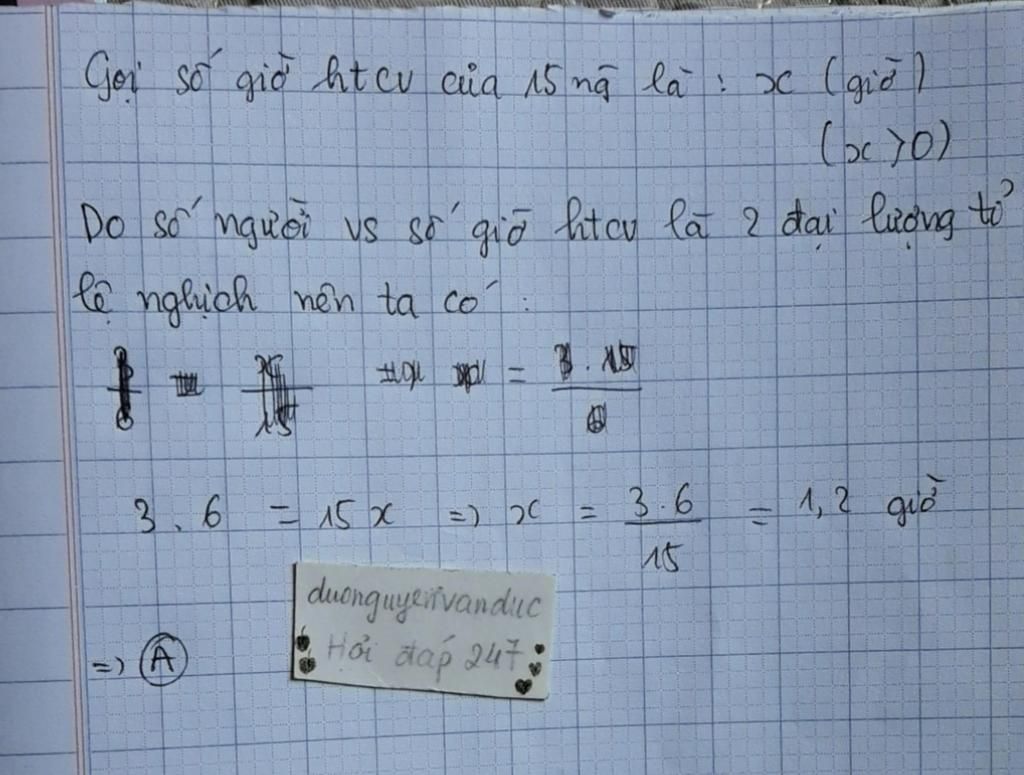 Gọi số giờ htcv của 15 ng là : x (giờ)
(x > 0)
Do số người vs số giờ htcv là 2 đại lượng tỉ
lệ nghịch nên ta có :
3 . 6 = 15 x => x = \frac{3.6}{15} = 1,2 giờ
=> A
duonguyenvanduc
Hỏi đáp 247